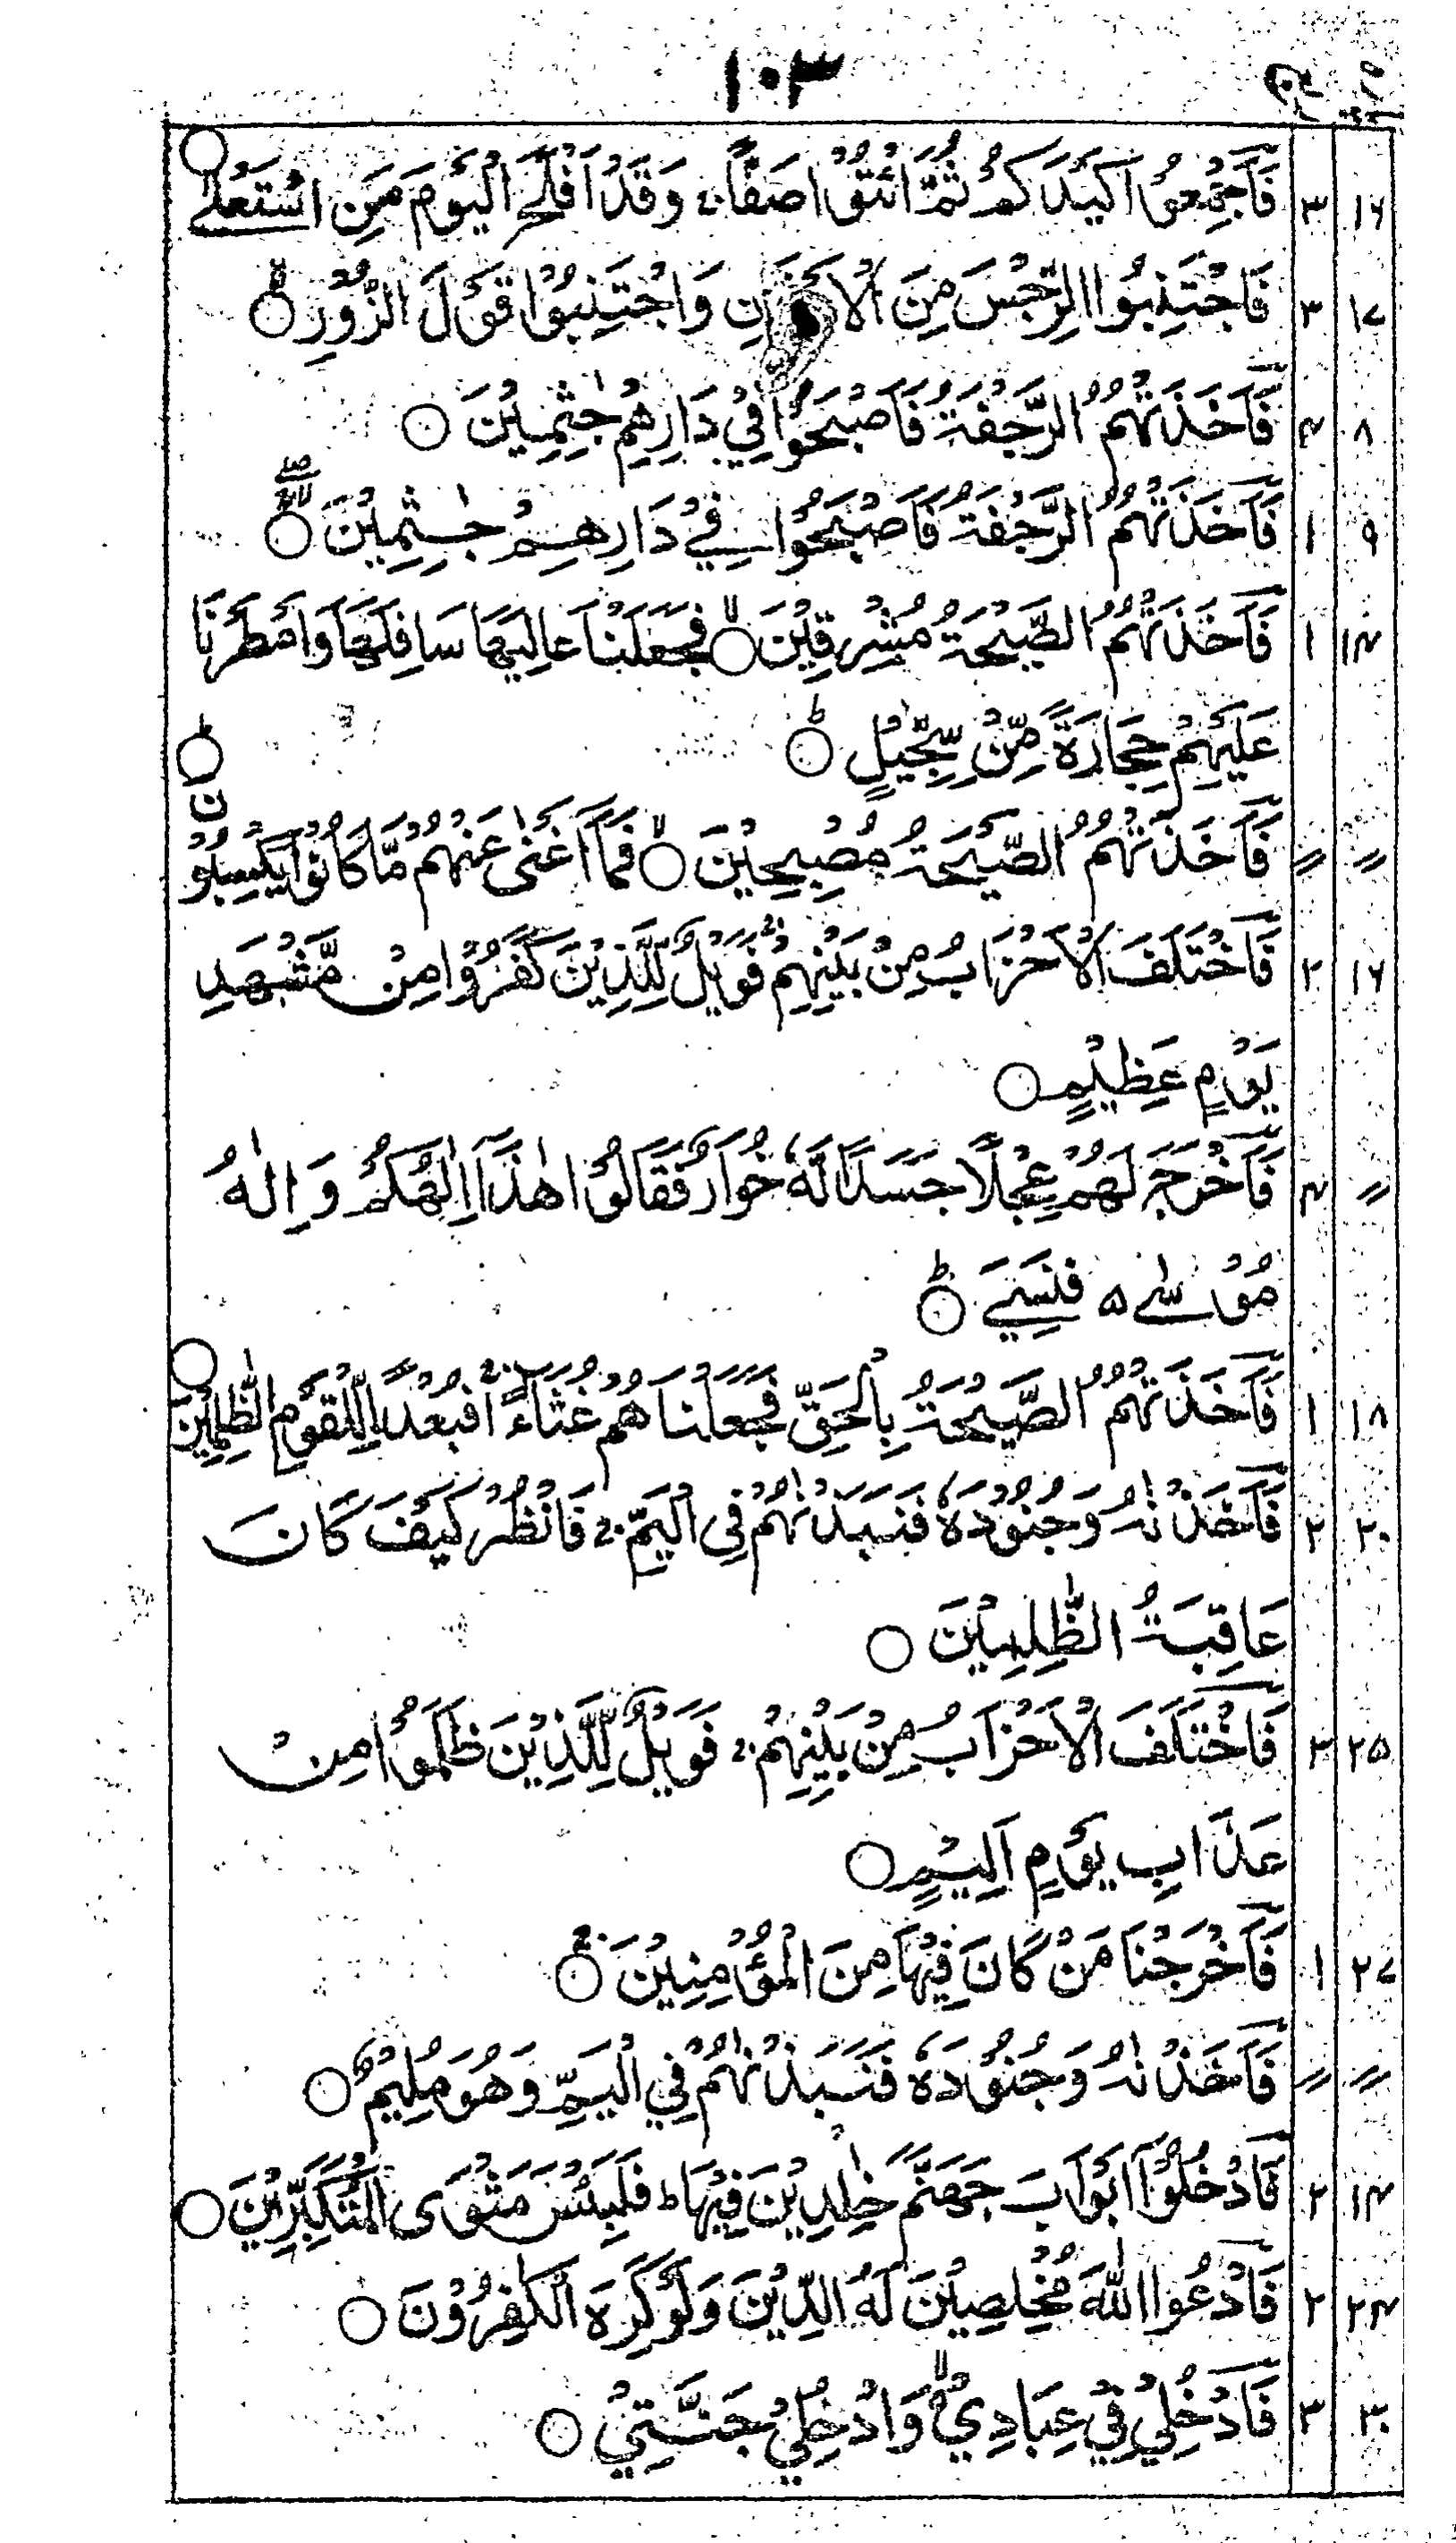 ۱۰۳
۱۶ ۳ فَاَجْمِعُوْا كَيْدَكُمْ ثُمَّ ائْتُوْا صَفًّا ۚ وَقَدْ اَفْلَحَ الْيَوْمَ مَنِ اسْتَعْلٰى ○
۱۷ ۳ فَاجْتَنِبُوا الرِّجْسَ مِنَ وَاجْتَنِبُوْا قَوْلَ الزُّوْرِ ○ۙ
۸ ۴ فَاَخَذَتْهُمُ الرَّجْفَةُ فَاَصْبَحُوْا فِيْ دَارِهِمْ جٰثِمِيْنَ ○
۹ ۱ فَاَخَذَتْهُمُ الرَّجْفَةُ فَاَصْبَحُوْا فِيْ دَارِهِمْ جٰثِمِيْنَ ○
۱۴ ۱ فَاَخَذَتْهُمُ الصَّيْحَةُ مُشْرِقِيْنَ ○ۙ فَجَعَلْنَا عَالِيَهَا سَافِلَهَا وَاَمْطَرْنَا
عَلَيْهِمْ حِجَارَةً مِّنْ سِجِّيْلٍ ○ؕ
〃 〃 فَاَخَذَتْهُمُ الصَّيْحَةُ مُصْبِحِيْنَ ○ۙ فَمَاۤ اَغْنٰى عَنْهُمْ مَّا كَانُوْا يَكْسِبُوْنَ ○ؕ
۱۶ ۲ فَاخْتَلَفَ الْاَحْزَابُ مِنْ بَيْنِهِمْ ۚ فَوَيْلٌ لِّلَّذِيْنَ كَفَرُوْا مِنْ مَّشْهَدِ
يَوْمٍ عَظِيْمٍ ○
〃 ۴ فَاَخْرَجَ لَهُمْ عِجْلًا جَسَدًا لَّهٗ خُوَارٌ فَقَالُوْا هٰذَاۤ اِلٰهُكُمْ وَاِلٰهُ
مُوْسٰى ۵ فَنَسِيَ ○ؕ
۱۸ ۱ فَاَخَذَتْهُمُ الصَّيْحَةُ بِالْحَقِّ فَجَعَلْنَاهُمْ غُثَآءً ۚ فَبُعْدًا لِّلْقَوْمِ الظّٰلِمِيْنَ ○
۲۰ ۲ فَاَخَذْنٰهُ وَجُنُوْدَهٗ فَنَبَذْنٰهُمْ فِى الْيَمِّ ۚ فَانْظُرْ كَيْفَ كَانَ
عَاقِبَةُ الظّٰلِمِيْنَ ○
۲۵ ۳ فَاخْتَلَفَ الْاَحْزَابُ مِنْ بَيْنِهِمْ ۚ فَوَيْلٌ لِّلَّذِيْنَ ظَلَمُوْا مِنْ
عَذَابِ يَوْمٍ اَلِيْمٍ ○
۲۷ ۱ فَاَخْرَجْنَا مَنْ كَانَ فِيْهَا مِنَ الْمُؤْمِنِيْنَ ○ۚ
〃 〃 فَاَخَذْنٰهُ وَجُنُوْدَهٗ فَنَبَذْنٰهُمْ فِي الْيَمِّ وَهُوَ مُلِيْمٌ ○
۱۴ ۲ فَادْخُلُوْۤا اَبْوَابَ جَهَنَّمَ خٰلِدِيْنَ فِيْهَا ؕ فَلَبِئْسَ مَثْوَى الْمُتَكَبِّرِيْنَ ○
۲۴ ۲ فَادْعُوا اللّٰهَ مُخْلِصِيْنَ لَهُ الدِّيْنَ وَلَوْ كَرِهَ الْكٰفِرُوْنَ ○
۳۰ ۳ فَادْخُلِيْ فِيْ عِبَادِيْ ۙ وَادْخُلِيْ جَنَّتِيْ ○